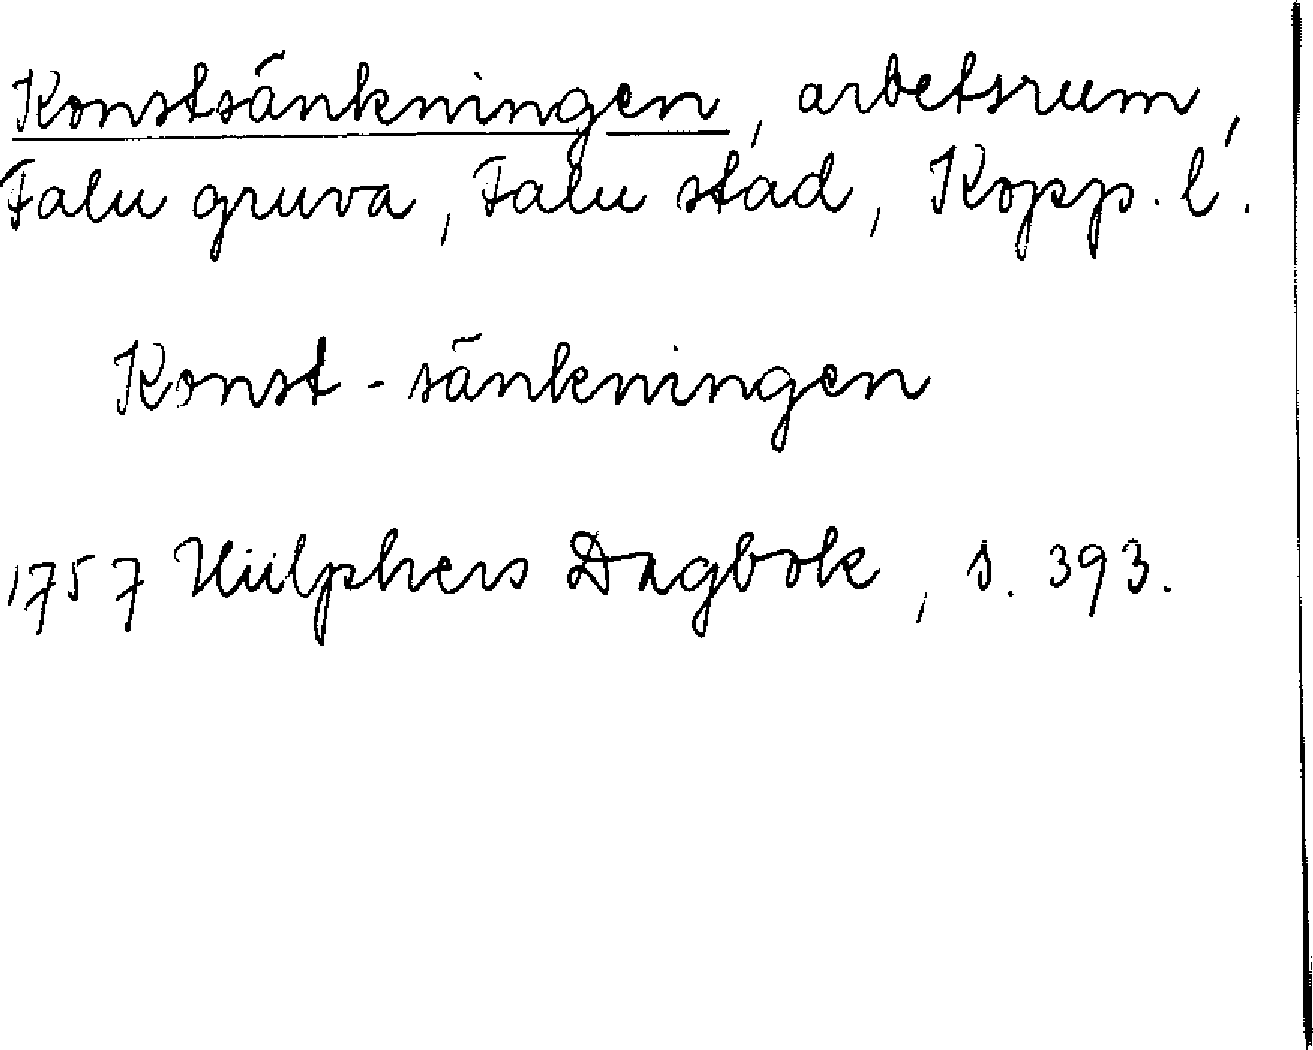 Konstsänkningen, arbetsrum,
Falu gruva, Falu stad, Kopp. l.
Konst-sänkningen
1757 Hülphers Dagbok, s. 393.